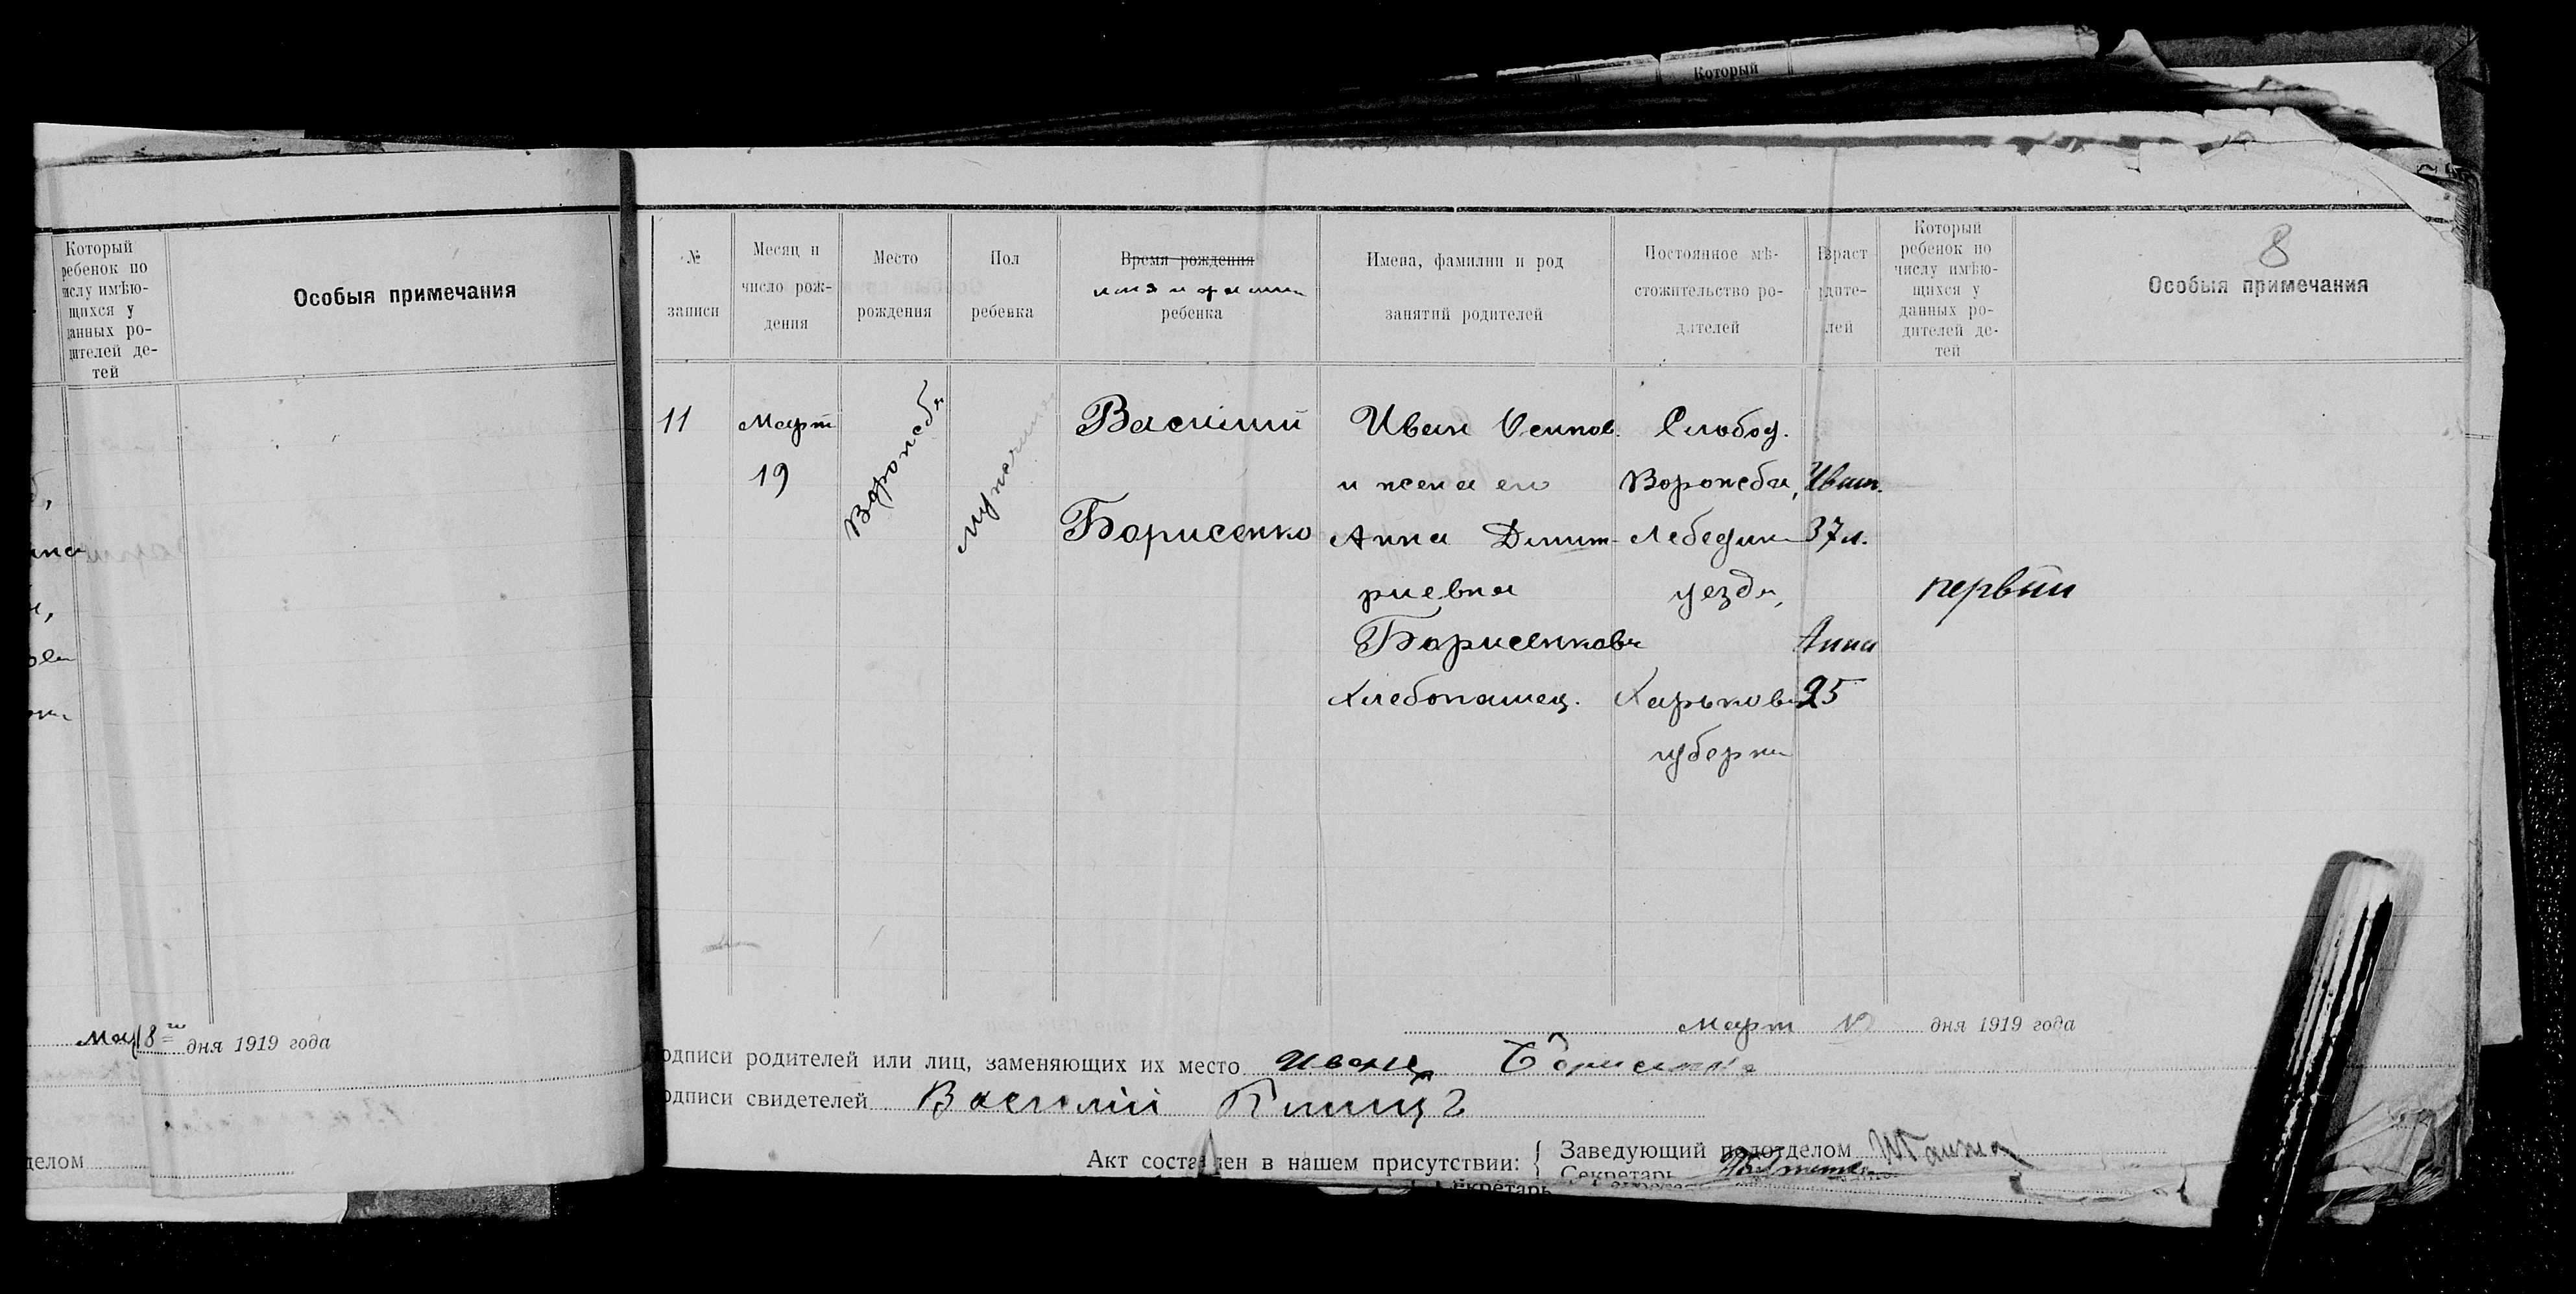 Который
Который
ребенок по
числу имѣю-
щихся у
данных ро-
дителей де-
тей
Особыя примечания
дня 1919 года
8
№
записи
Месяц и
число рож-
дения
Место
рождения
Пол
ребенка
Время рождения
имя и фамили
ребенка
Имена, фамилии и род
занятий родителей
Постоянное мѣ-
стожительство ро-
дителей
Взраст
родите-
лей
Который
ребенок по
числу имѣю-
щихся у
данных ро-
дителей де-
тей
Особыя примечания
11
Март
19
Ворожба
мужчина
Василий
Борисенко
Иван Осипов.
и жена его
Анна Димит-
риевна
Борисенкова
Хлебопашец.
Слобод.
Ворожба,
Лебедин
уезда,
Харьков
губерни
Иван.
37 л.
Анна
25
первый
Март 19 дня 1919 года
одписи родителей или лиц, заменяющих их место Иванъ Борисенко
одписи свидетелей Василий
Акт составлен в нашем присутствии:
Заведующий подотделом
Секретарь